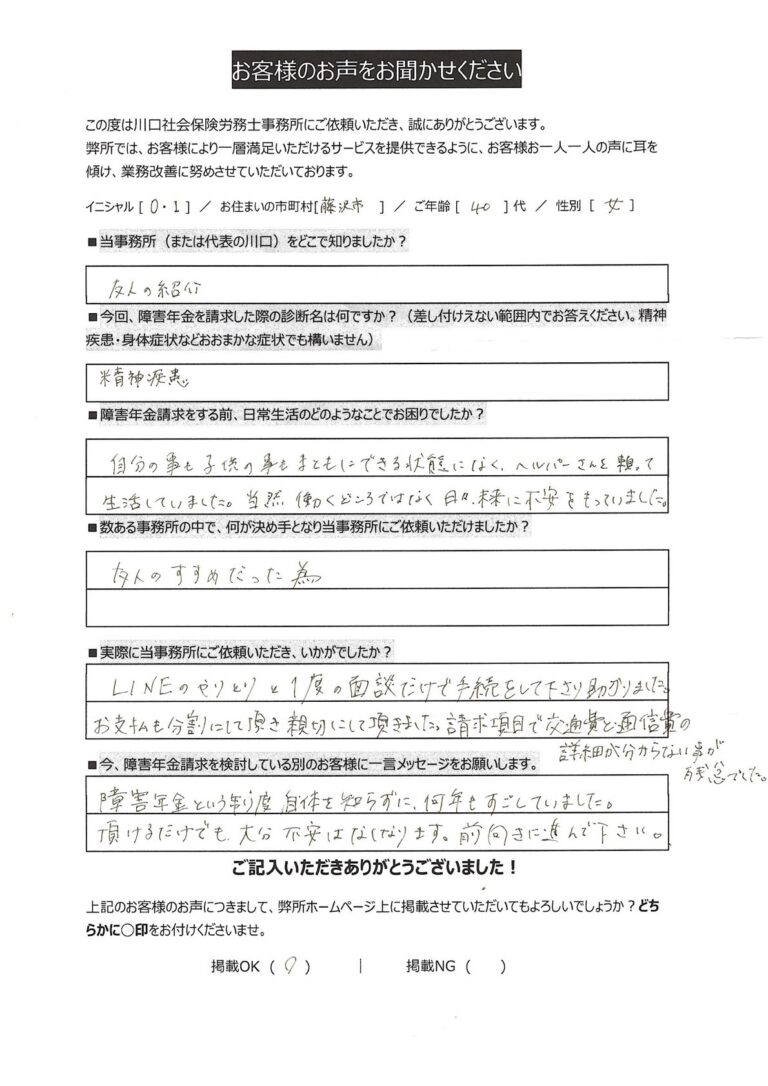 お客様のお声をお聞かせください
この度は川口社会保険労務士事務所にご依頼いただき、誠にありがとうございます。
弊所では、お客様により一層満足いただけるサービスを提供できるように、お客様お一人一人の声に耳を
傾け、業務改善に努めさせていただいております。
イニシャル [ O・I ] ／ お住まいの市町村[藤沢市 ] ／ ご年齢 [ 40 ] 代 ／ 性別 [ 女 ]
■当事務所（または代表の川口）をどこで知りましたか？
友人の紹介
■今回、障害年金を請求した際の診断名は何ですか？（差し付けえない範囲内でお答えください。精神
疾患・身体症状などおおまかな症状でも構いません）
精神疾患
■障害年金請求をする前、日常生活のどのようなことでお困りでしたか？
自分の事も子供の事もまともにできる状態になく、ヘルパーさんを頼って
生活していました。当然、働くどころではなく日々、未来に不安をもっていました。
■数ある事務所の中で、何が決め手となり当事務所にご依頼いただけましたか？
友人のすすめだった為
■実際に当事務所にご依頼いただき、いかがでしたか？
LINEのやりとりと1度の面談だけで手続をして下さり助かりました。
お支払も分割にして頂き親切にして頂きました。請求項目で交通費と通信費の
詳細が分からない事が
残念でした。
■今、障害年金請求を検討している別のお客様に一言メッセージをお願いします。
障害年金という制度自体を知らずに、何年もすごしていました。
頂けるだけでも、大分不安はなくなります。前向きに進んで下さい。
ご記入いただきありがとうございました！
上記のお客様のお声につきまして、弊所ホームページ上に掲載させていただいてもよろしいでしょうか？どち
らかに〇印をお付けくださいませ。
掲載OK （ 〇 ） ｜ 掲載NG （ ）